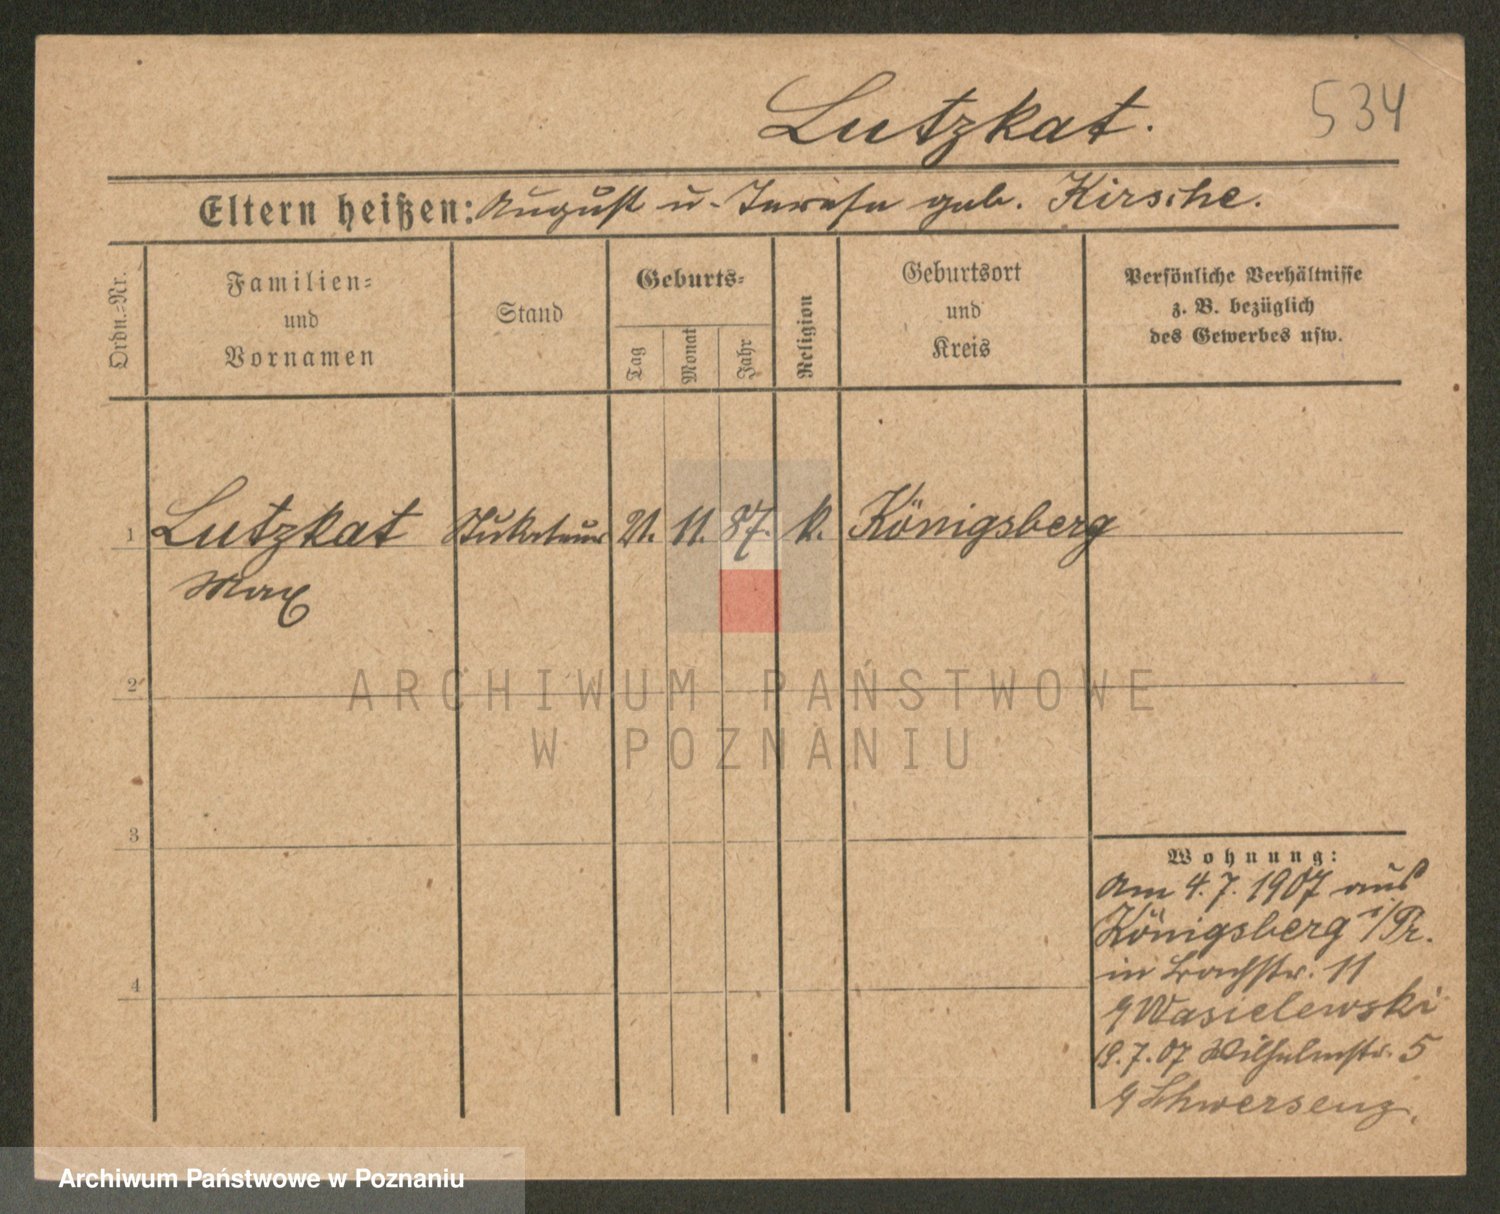 Lutzkat.
534
Eltern heißen: August u. Teresa geb. Kirsche.
Ordn.=Nr.
Familien=
und
Vornamen
Stand
Geburts=
Tag
Monat
Jahr
Religion
Geburtsort
und
Kreis
Persönliche Verhältnisse
z. B. bezüglich
des Gewerbes usw.
1 Lutzkat Stukateur 21. 11. 87. k. Königsberg
Max
2
ARCHIWUM PAŃSTWOWE
W POZNANIU
3
4
Wohnung:
Am 4.7.1907 aus
Königsberg i/Pr.
in 11
Wasielewski
19.7.07 Wilhelmstr. 5
Schwersenz.
Archiwum Państwowe w Poznaniu